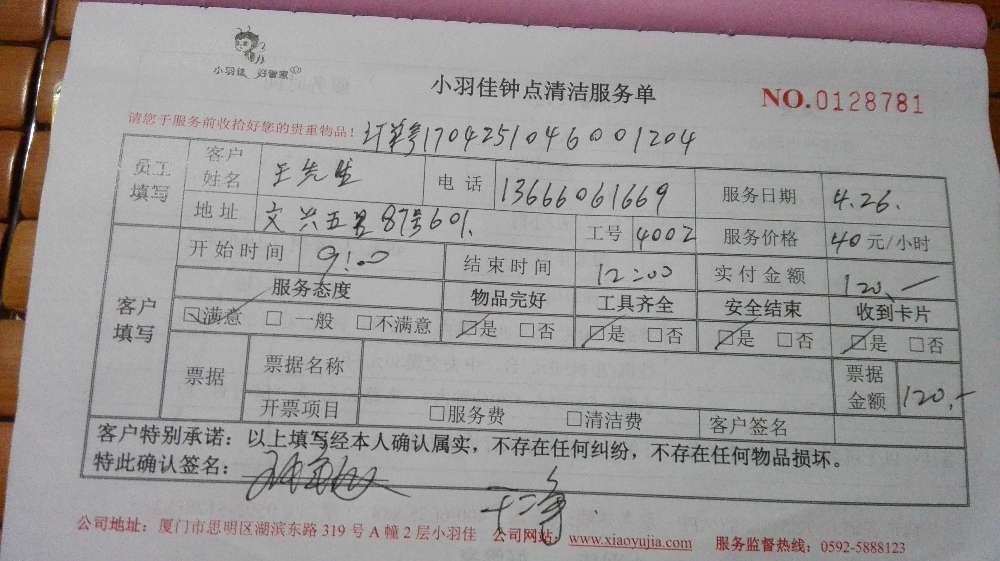 小羽佳 好管家
小羽佳钟点清洁服务单
NO.0128781
请您于服务前收拾好您的贵重物品！ 订单号1704251046001204
员工填写 客户姓名 王先生 电话 13666061669 服务日期 4.26.
地址 文兴五里87号601. 工号 4002 服务价格 40元/小时
客户填写 开始时间 9:00 结束时间 12:00 实付金额 120.—
服务态度 物品完好 工具齐全 安全结束 收到卡片
☑满意 □一般 □不满意 ☑是 □否 ☑是 □否 ☑是 □否 ☑是 □否
票据 票据名称 票据金额 120.—
开票项目 □服务费 □清洁费 客户签名
客户特别承诺：以上填写经本人确认属实，不存在任何纠纷，不存在任何物品损坏。
特此确认签名：
公司地址：厦门市思明区湖滨东路319号A幢2层小羽佳 公司网站：www.xiaoyujia.com 服务监督热线：0592-5888123